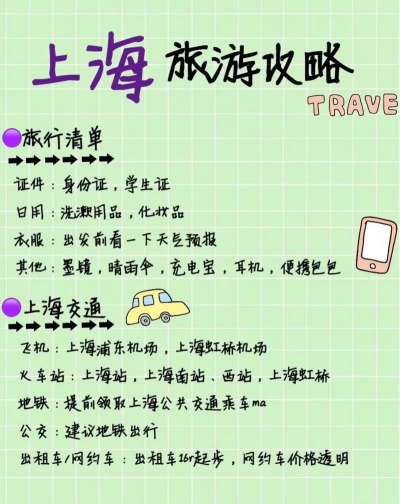 上海 旅游攻略
TRAVE
旅行清单
证件：身份证，学生证
日用：洗漱用品，化妆品
衣服：出发前看一下天气预报
其他：墨镜，晴雨伞，充电宝，耳机，便携包包
上海交通
飞机：上海浦东机场，上海虹桥机场
火车站：上海站，上海南站、西站，上海虹桥
地铁：提前领取上海公共交通乘车ma
公交：建议地铁出行
出租车/网约车：出租车16r起步，网约车价格透明